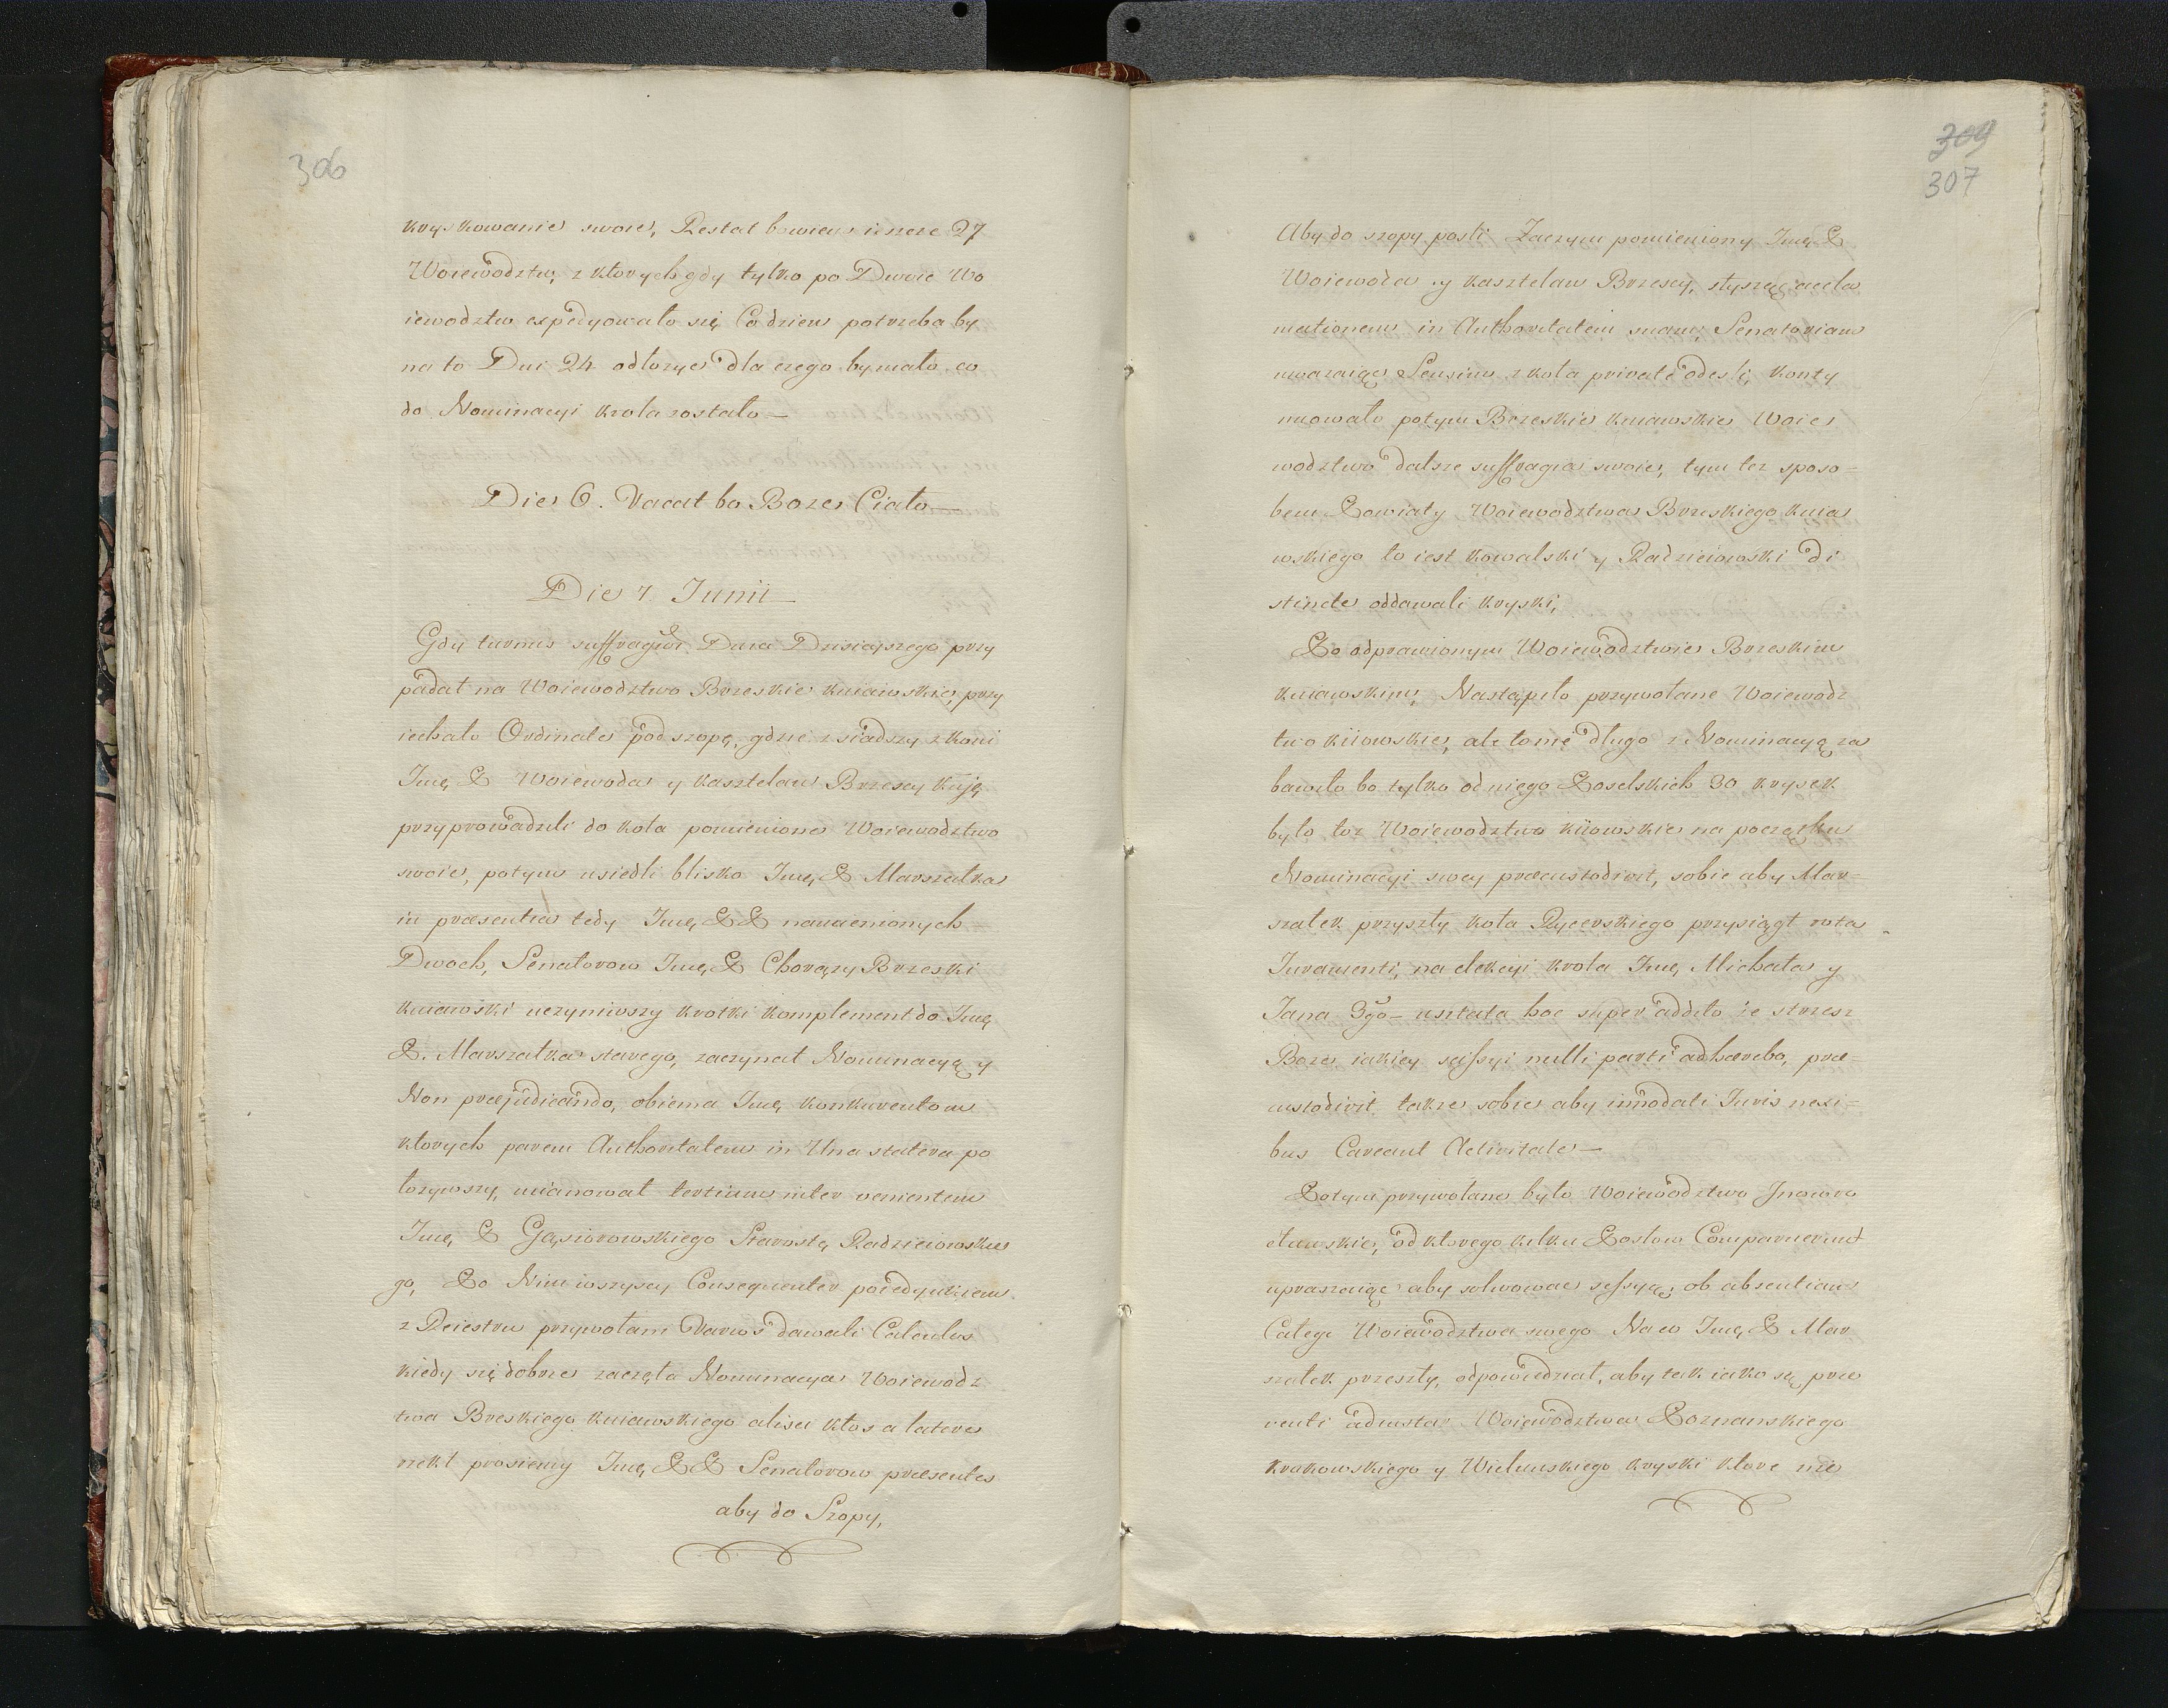 306
kryskowanie swoie, Restat bowiem ieszcze 27
Woiewodztw, z ktorych gdy tylko po Dwoie Wo
iewodztw expedyowało się Co dzien potrzeba by
na to Dni 24 odłozyć dla czego by mało co
do Nominacyi Krola zostało —
Die 6. Vacat bo Boze Ciało —
Die 7. Junii —
Gdy turnus suffragior Dnia Dzisieyszego przy
padał na Woiewodztwo Brzeskie kuiawskie, przy
iechało Ordinate pod szopę, gdzie zsiadszy z koni
Imę P Woiewoda y kasztelan Brzescy kuję
przyprowadzili do koła pomienione Woiewodztwo
swoie, potym usiedli blisko Imę P Marszałka
in præsentia tedy Imę PP namienionych
Dwoch, Senatorow Imę P Chorązy Brzeski
kuiawski uczyniwszy krotki komplement do Imę
P. Marszałka starego, zaczynał Nominacyą y
Non præjudicando, obiema Imę konkurentom
ktorych parem Authoritatem in Una statera po
łozywszy, mianował tertium inter venientem
Imę P Gąsiorowskiego Starostę Radzieiowskie
go, Po Nim wszyscy Consequenter poiedynkiem
z Reiestru przywołani Varios dawali Calculos
kiedy się dobrze zaczęła Nominacya Woiewodz
twa Breskiego kuiawskiego alisci ktos a latere
rzekł prosiemy Imę PP Senatorow præsentes
aby do Szopy,
309
307
Aby do szopy posli Zaczym pomieniony Imę P
Woiewoda y kasztelan Brzescy, słysząc accla
mationem in Authoritatem suam, Senatoriam
uwazaiąc Sensim z koła privatè odesli, konty
nuowało potym Brzeskie kuiawskie Woie
wodztwo dalsze suffragia swoie, tym tez sposo=
bem Powiaty Woiewodztwa Brzeskiego kuia
wskiego to iest kowalski y Radzieiowski di
stincte oddawali kryski,
Po odprawionym Woiewodztwie Brzeskim
kuiawskim, Nastąpiło przywołane Woiewodz
two kiiowskie, ale to nię długo z Nominacyą za
bawiło bo tylko od niego Poselskich 30 krysek
było toz Woiewodztwo kiiowskie na początku
Nominacyi swey præcustodivit, sobie aby Mar=
szałek przyszły koła Rycerskiego przysiągł rota
Juramenti, na elekcyi krola Imę Michała y
Jana 3go — usitata hoc super addito ze strzesz
Boze iakiey scissyi nulli parti adhærebo, præ=
custodivit takze sobie aby innodati Juris nexi=
bus Careant Activitate —
Potym przywołane było Woiewodztwo Inowro
cławskie, od ktorego kilku Posłow Comparuerunt
upraszaiąc aby solwować sessyą, ob absentiam
Całego Woiewodztwa swego Na co Imę P Mar
szałek przeszły, odpowiedział, aby tak iako są præ
venti ad instar Woiewodztwa Poznanskiego
krakowskiego y Wielunskiego kryski ktore nie